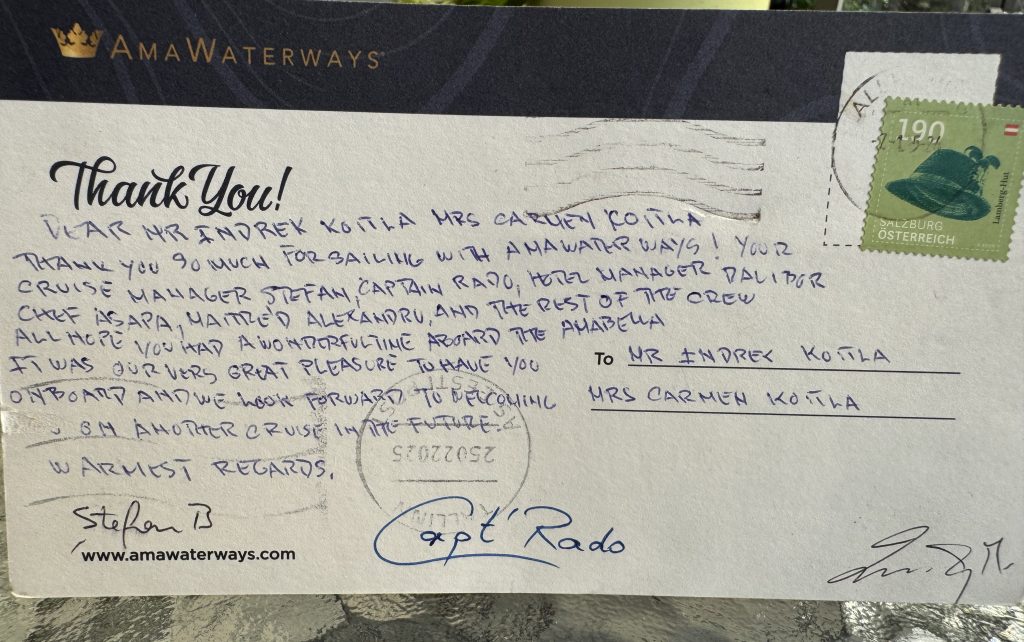 AMAWATERWAYS
190
Lamberg-Hut
SALZBURG
ÖSTERREICH
Thank You!
DEAR MR INDREK KOITLA MRS CARMEN KOITLA
THANK YOU SO MUCH FOR SAILING WITH AMAWATERWAYS! YOUR
CRUISE MANAGER STEFAN, CAPTAIN RADO, HOTEL MANAGER DALIBOR
CHEF ASAPA, MAITRE'D ALEXANDRU, AND THE REST OF THE CREW
ALL HOPE YOU HAD A WONDERFUL TIME ABOARD THE AMABELLA
IT WAS OUR VERS GREAT PLEASURE TO HAVE YOU
ONBOARD AND WE LOOK FORWARD TO WELCOMING
ON ANOTHER CRUISE IN THE FUTURE.
WARMEST REGARDS,
To MR INDREK KOITLA
MRS CARMEN KOITLA
25022025
Stefan B
Capt' Rado
www.amawaterways.com